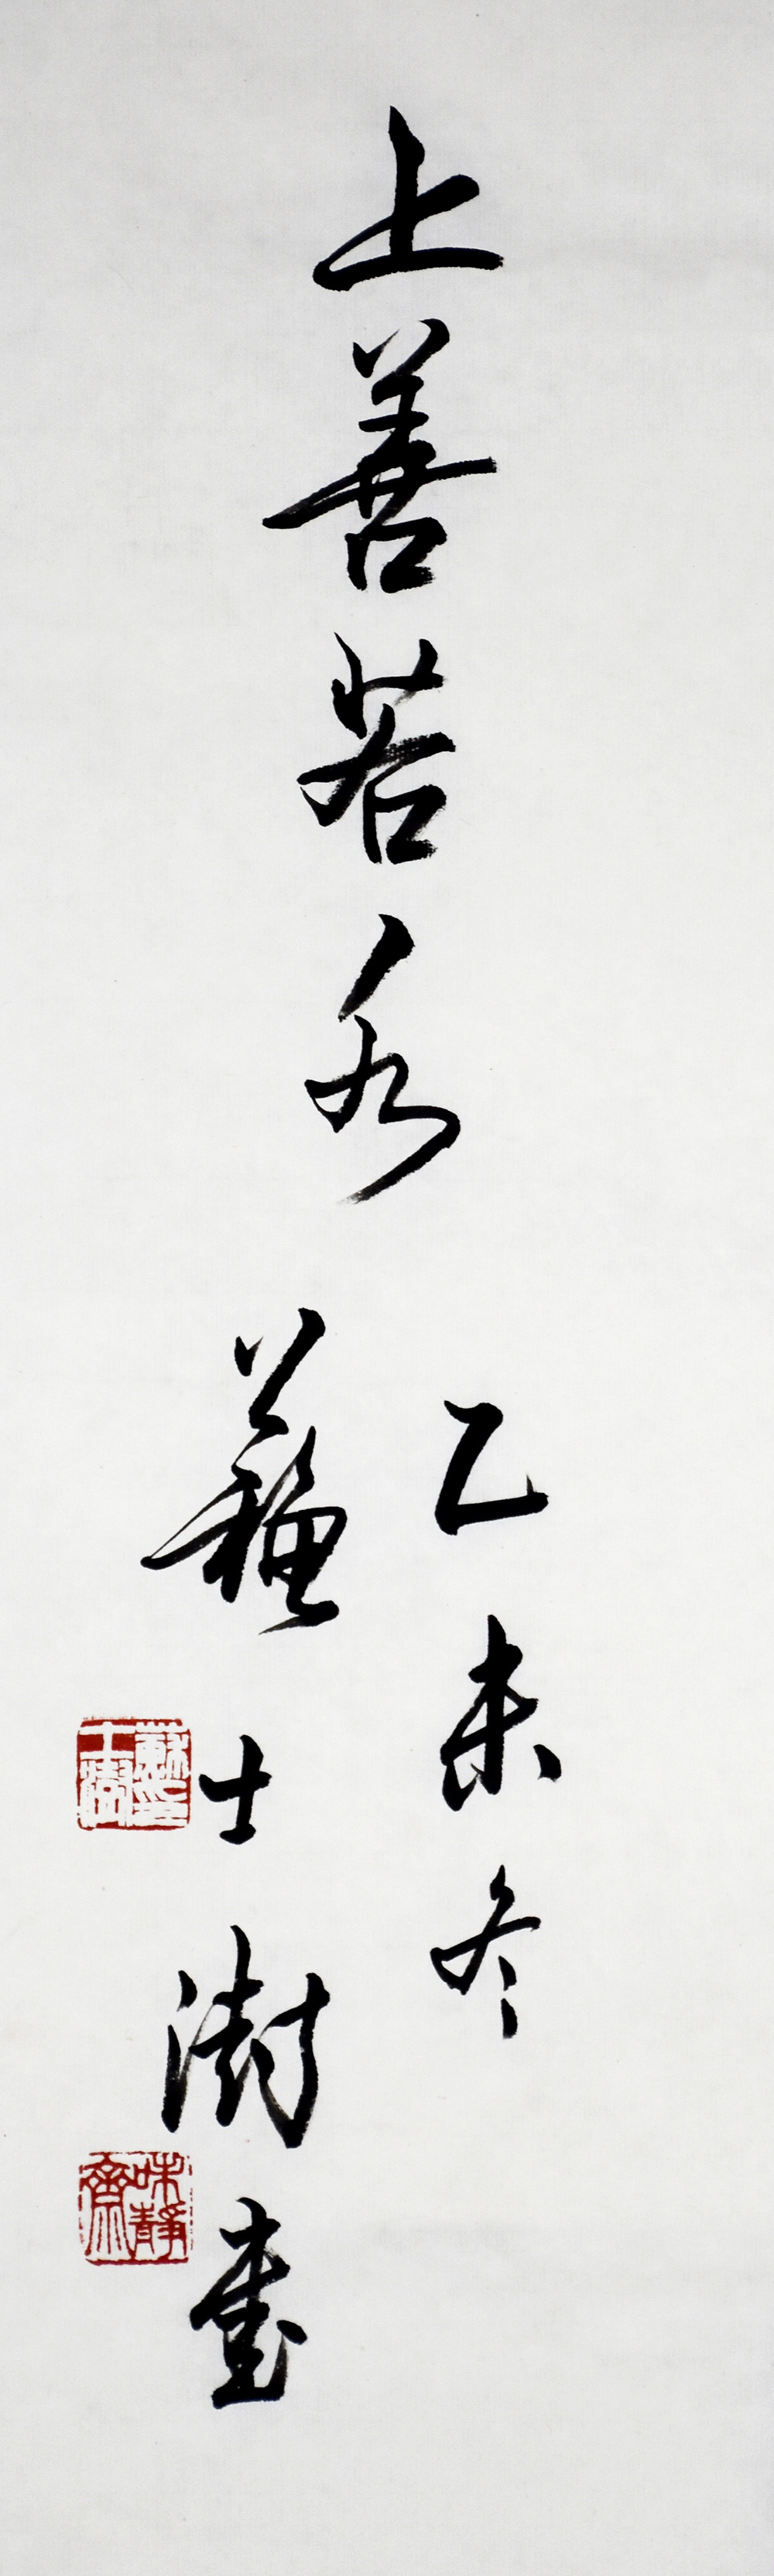 上善若水
乙未冬
蘇士澍書
蘇士澍印
味靜齋